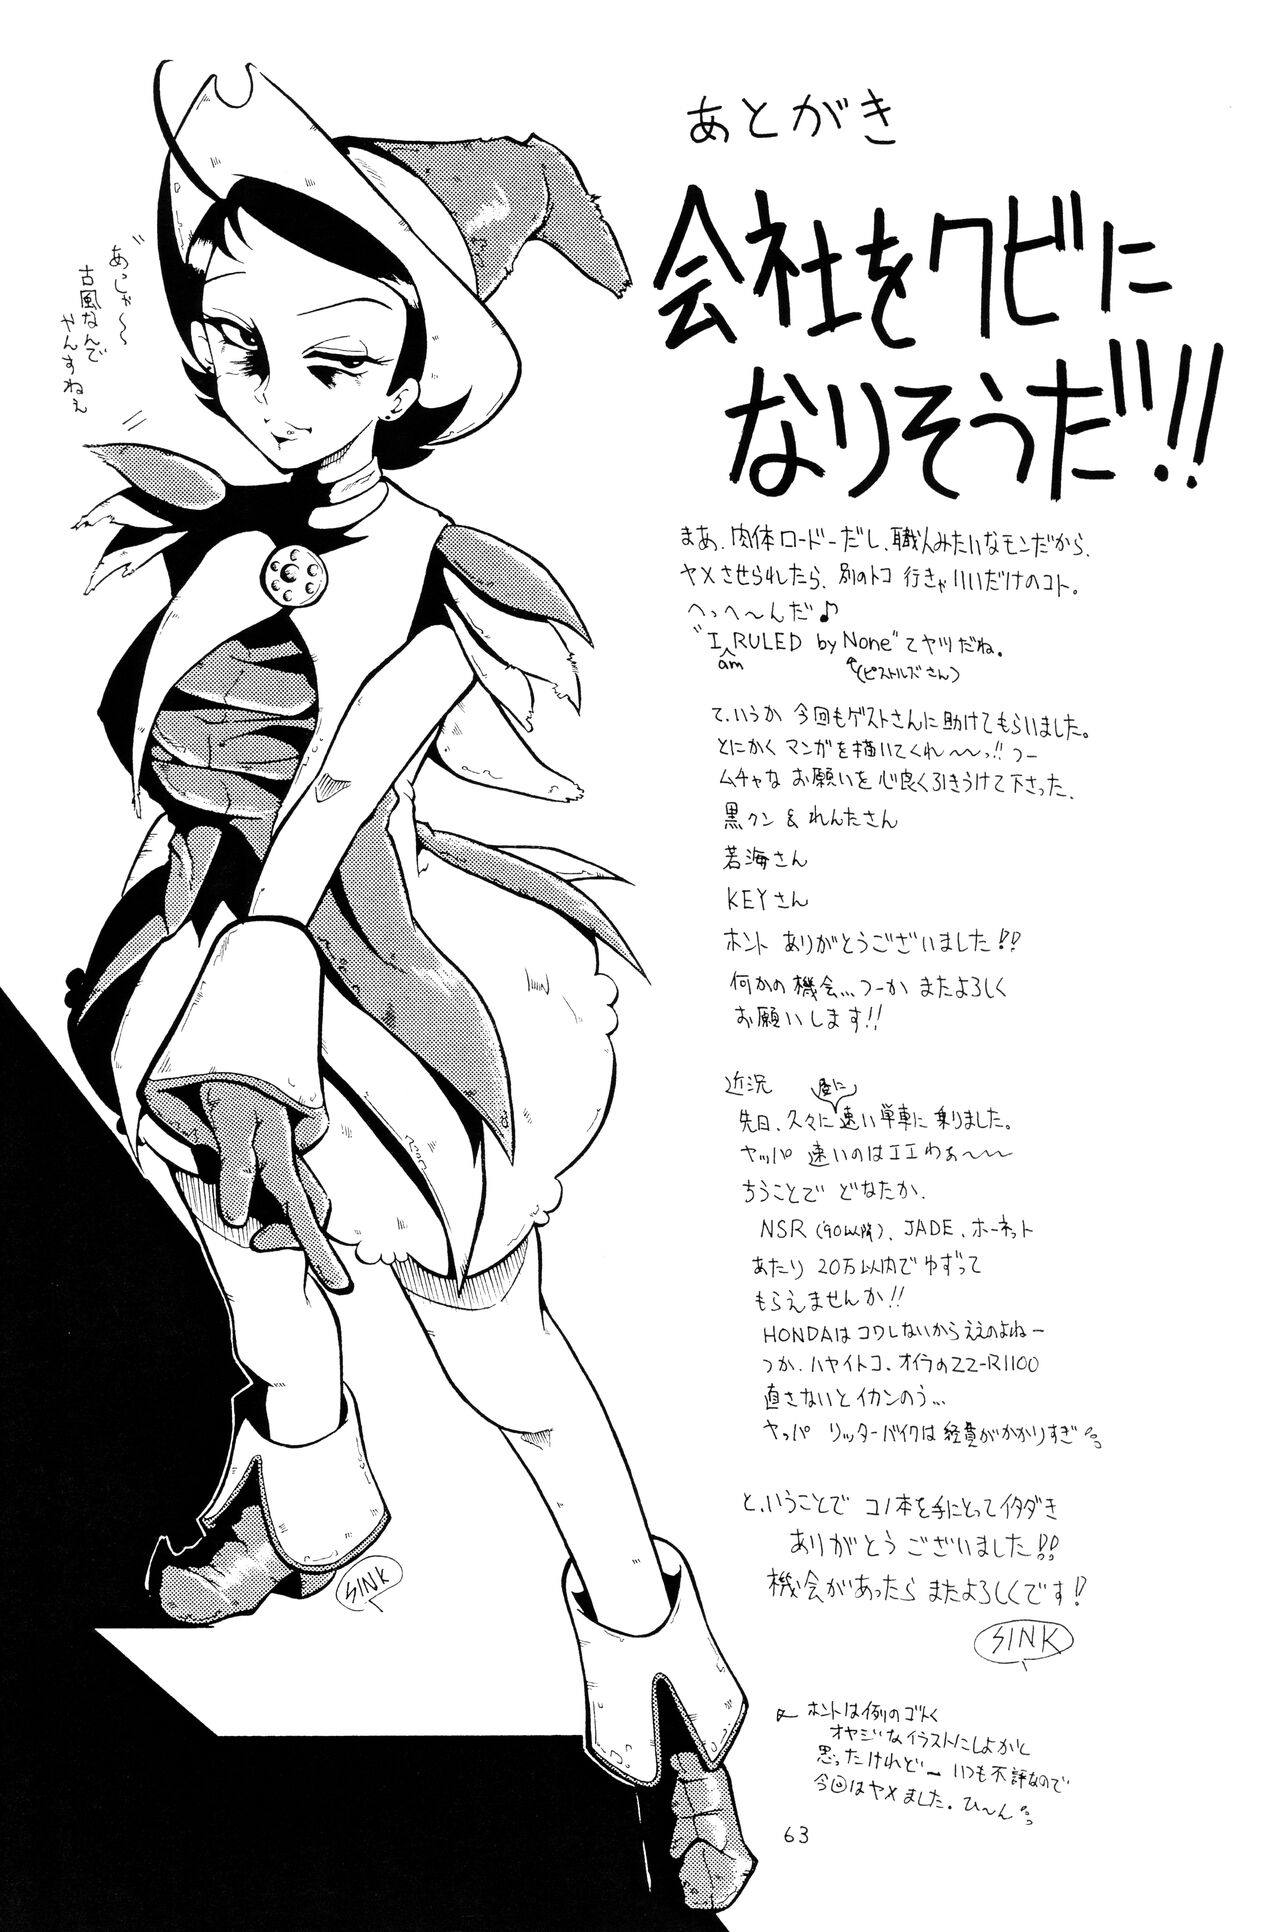 あとがき
会社をクビに
なりそうだ!!
まあ、肉体ロードーだし、職人みたいなモンだから、
ヤメさせられたら、別のトコ行きゃいいだけのコト。
へっへ〜んだ♪
"I RULED by None"てヤツだね。
am
(ピストルズさん)
て、いうか 今回もゲストさんに助けてもらいました。
とにかくマンガを描いてくれ〜〜っ!! つー
ムチャな お願いを心良く引きうけて下さった、
黒クン & れんたさん
若海さん
KEYさん
ホント ありがとうございました!!
何かの機会... つーか またよろしく
お願いします!!
近況
先日、久々に速い単車に乗りました。
ヤッパ 速いのはエエわぁ〜〜〜
ちうことで どなたか、
NSR('90以降)、JADE、ホーネット
あたり 20万以内でゆずって
もらえませんか!!
HONDAはコワしないからええのよねー
つか、ハヤイトコ、オイラのZZ-R1100
直さないとイカンのう...
ヤッパ リッターバイクは経費がかかりすぎ
と、いうことで コノ本を手にとってイタダき
ありがとう ございました!!
機会があったら またよろしくです!
SINK
ホントは例のゴトく
オヤジなイラストにしよかと
思ったけれどー いつも不評なので
今回はヤメました。ひ〜ん
あっしゃ〜〜
古風なんで
やんすねぇ
SINK
63